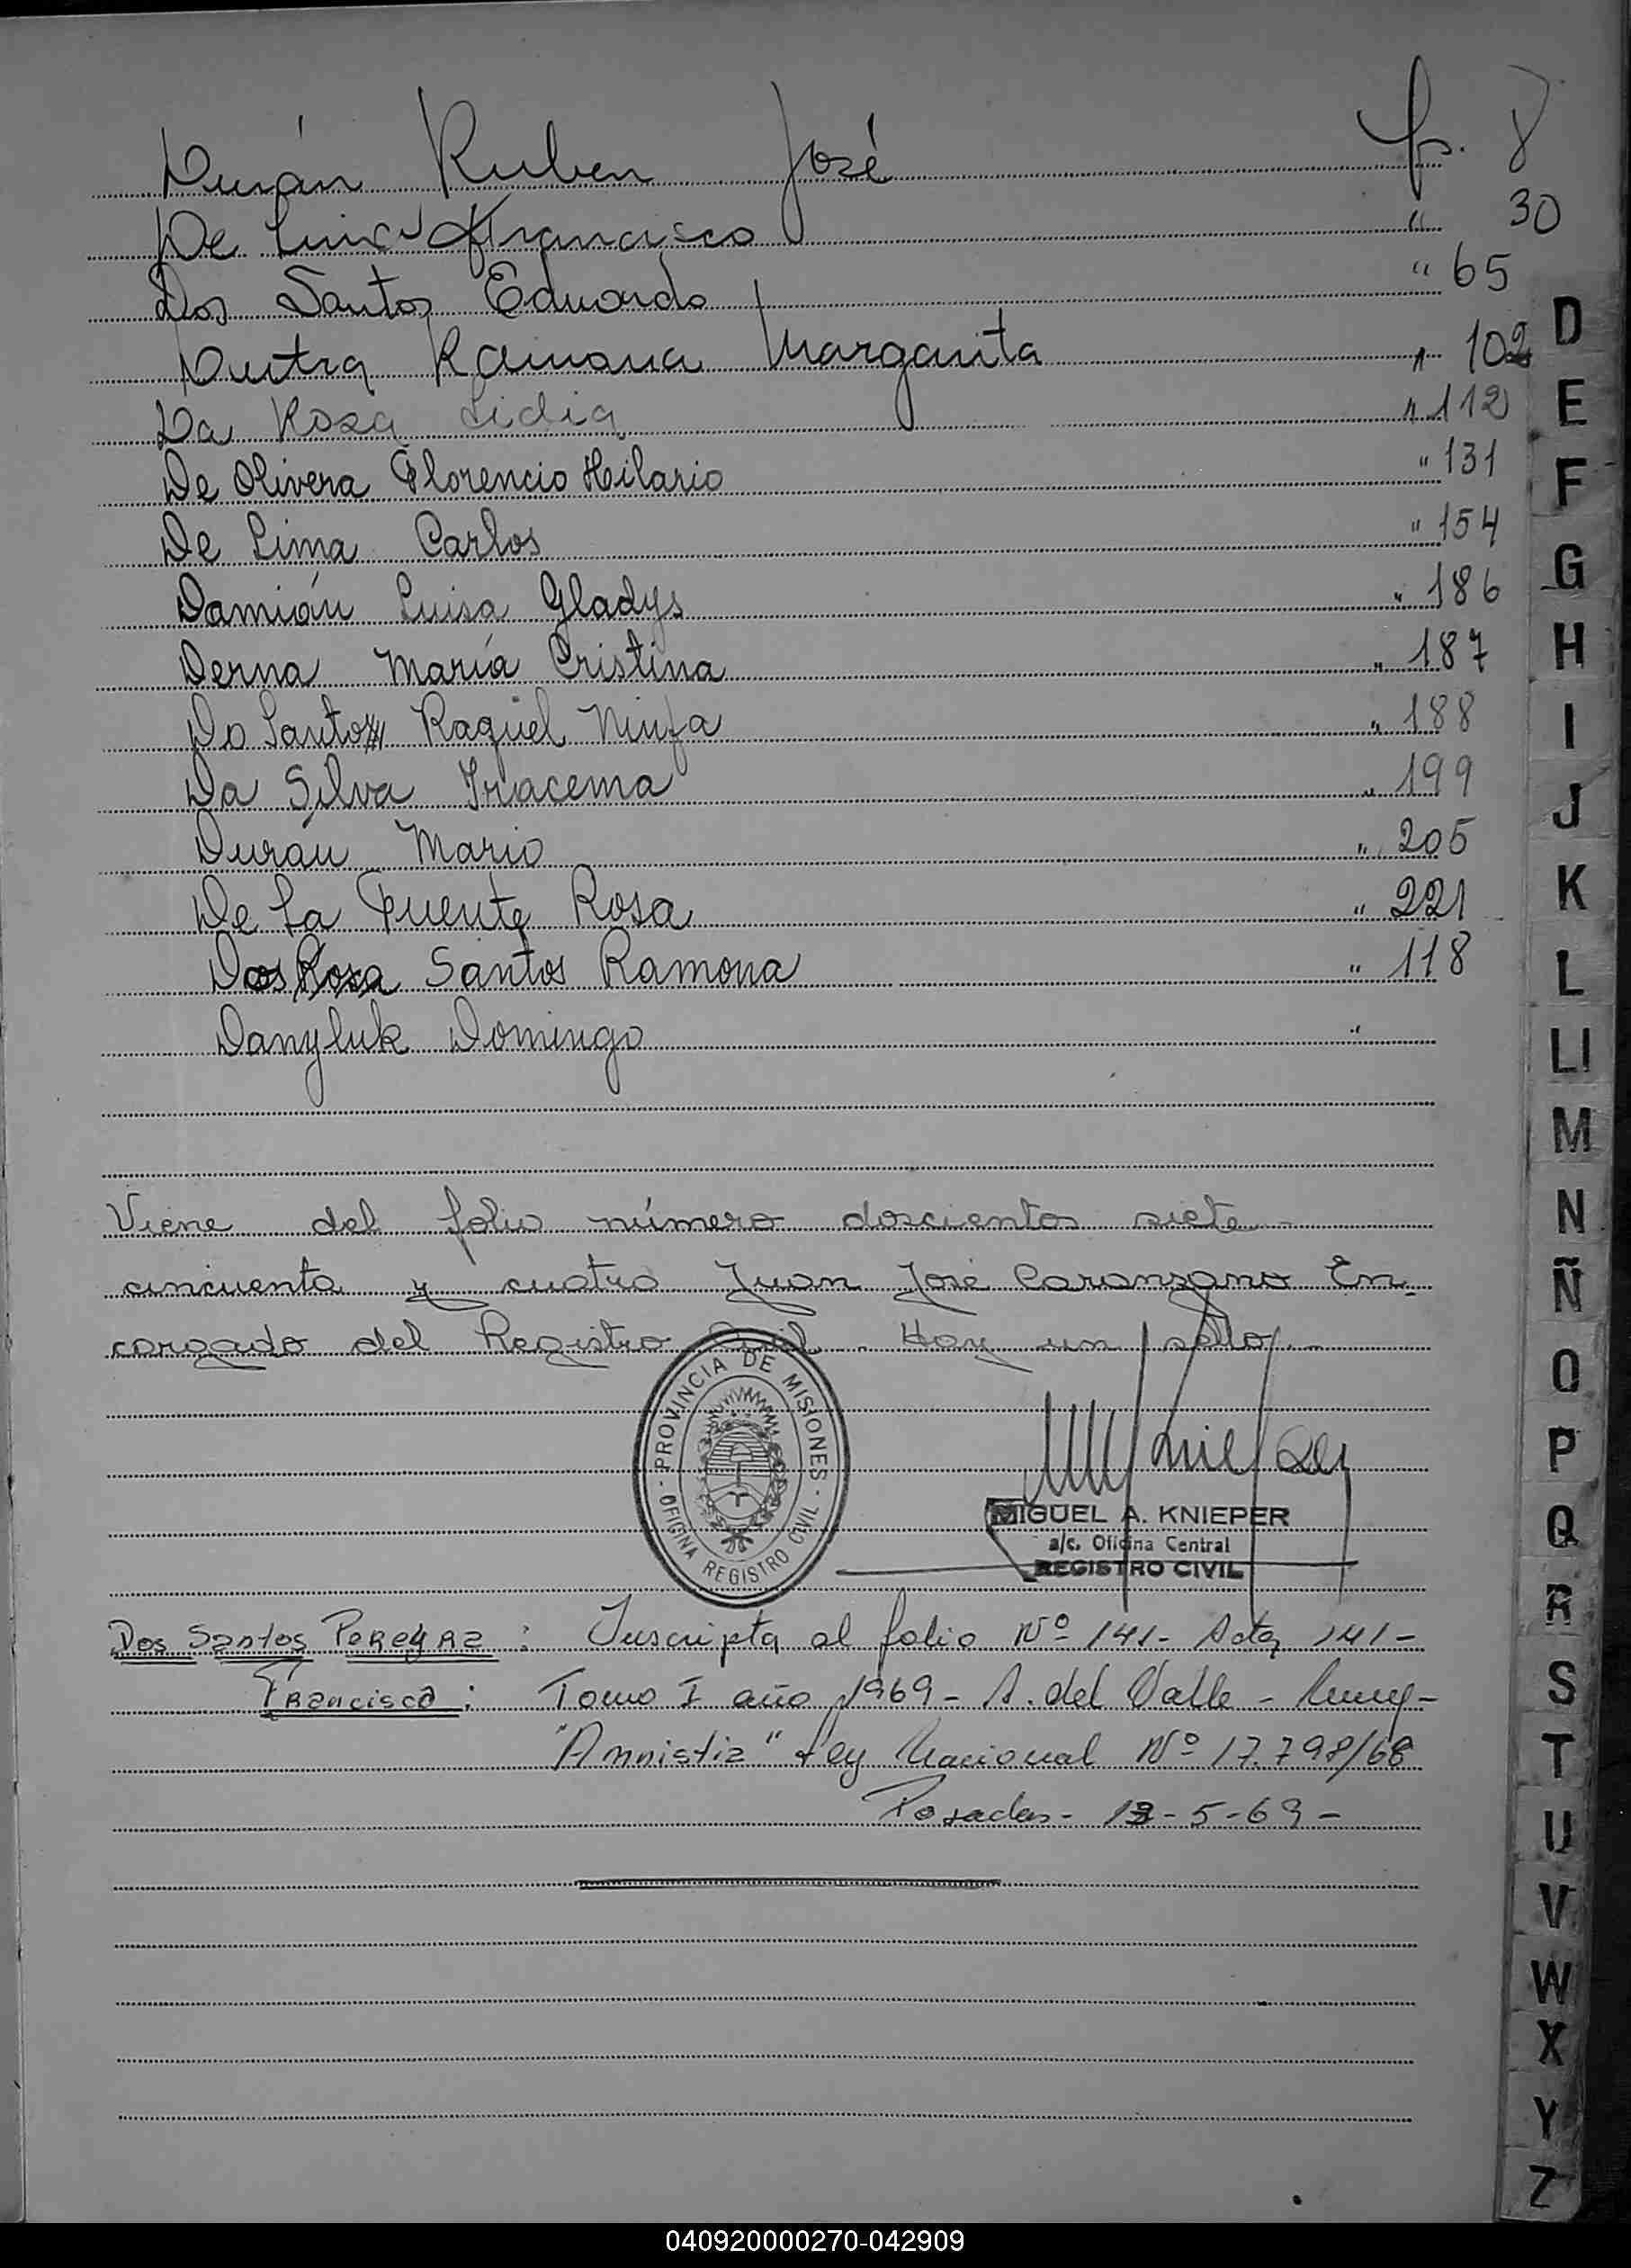 Durán Ruben José fs. 8
De Lima Francisco " 30
Dos Santos Eduardo " 65
Dutra Ramona Margarita " 102
Da Rosa Lidia " 112
De Olivera Florencio Hilario " 131
De Lima Carlos " 154
Damián Luisa Gladys " 186
Derna María Cristina " 187
Do Santos Raquel Ninfa " 188
Da Silva Iracema " 199
Durán Mario " 205
De La Fuente Rosa " 221
Dos Rosa Santos Ramona " 118
Danyluk Domingo "
Viene del folio número doscientos siete -
cincuenta y cuatro Juan José Caranzano En-
cargado del Registro Civil. Hay un sello. -
PROVINCIA DE MISIONES - OFICINA REGISTRO CIVIL -
MIGUEL A. KNIEPER
a/c. Oficina Central
REGISTRO CIVIL
Dos Santos Pereyra : Inscripta al folio Nº 141- Acta 141-
Francisca : Tomo I año 1969 - A. del Valle -
"Amnistia" Ley Nacional Nº 17.798/68
Posadas - 13-5-69 -
D
E
F
G
H
I
J
K
L
Ll
M
N
Ñ
O
P
Q
R
S
T
U
V
W
X
Y
Z
040920000270-042909